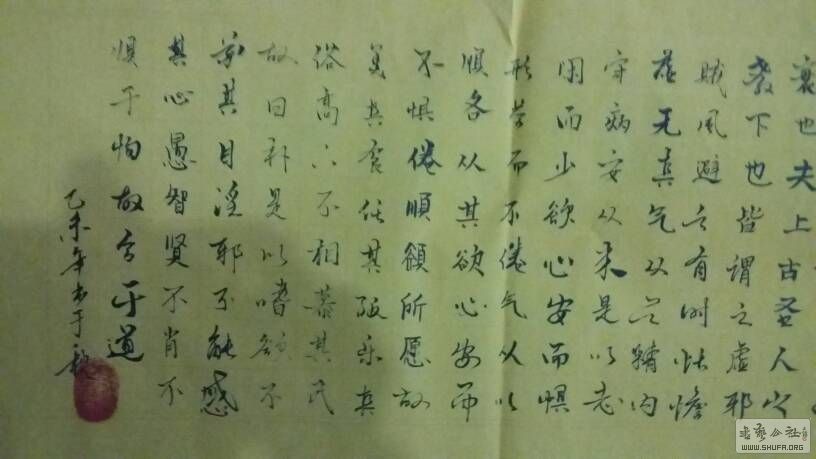 衰也夫上古圣人
教下也皆谓之虚邪
贼风避之有时恬憺
虚无真气从之精内
守病安从来是以志
闲而少欲心安而惧
形劳而不倦气从以
顺各从其欲心安而
不惧倦順所愿故
美其食任其服乐其
俗高下不相慕其民
故曰朴是以嗜欲不
劳其目淫邪不能惑
其心愚智贤不肖不
惧于物故合于道
乙未年书于秋
WWW.SHUFA.ORG